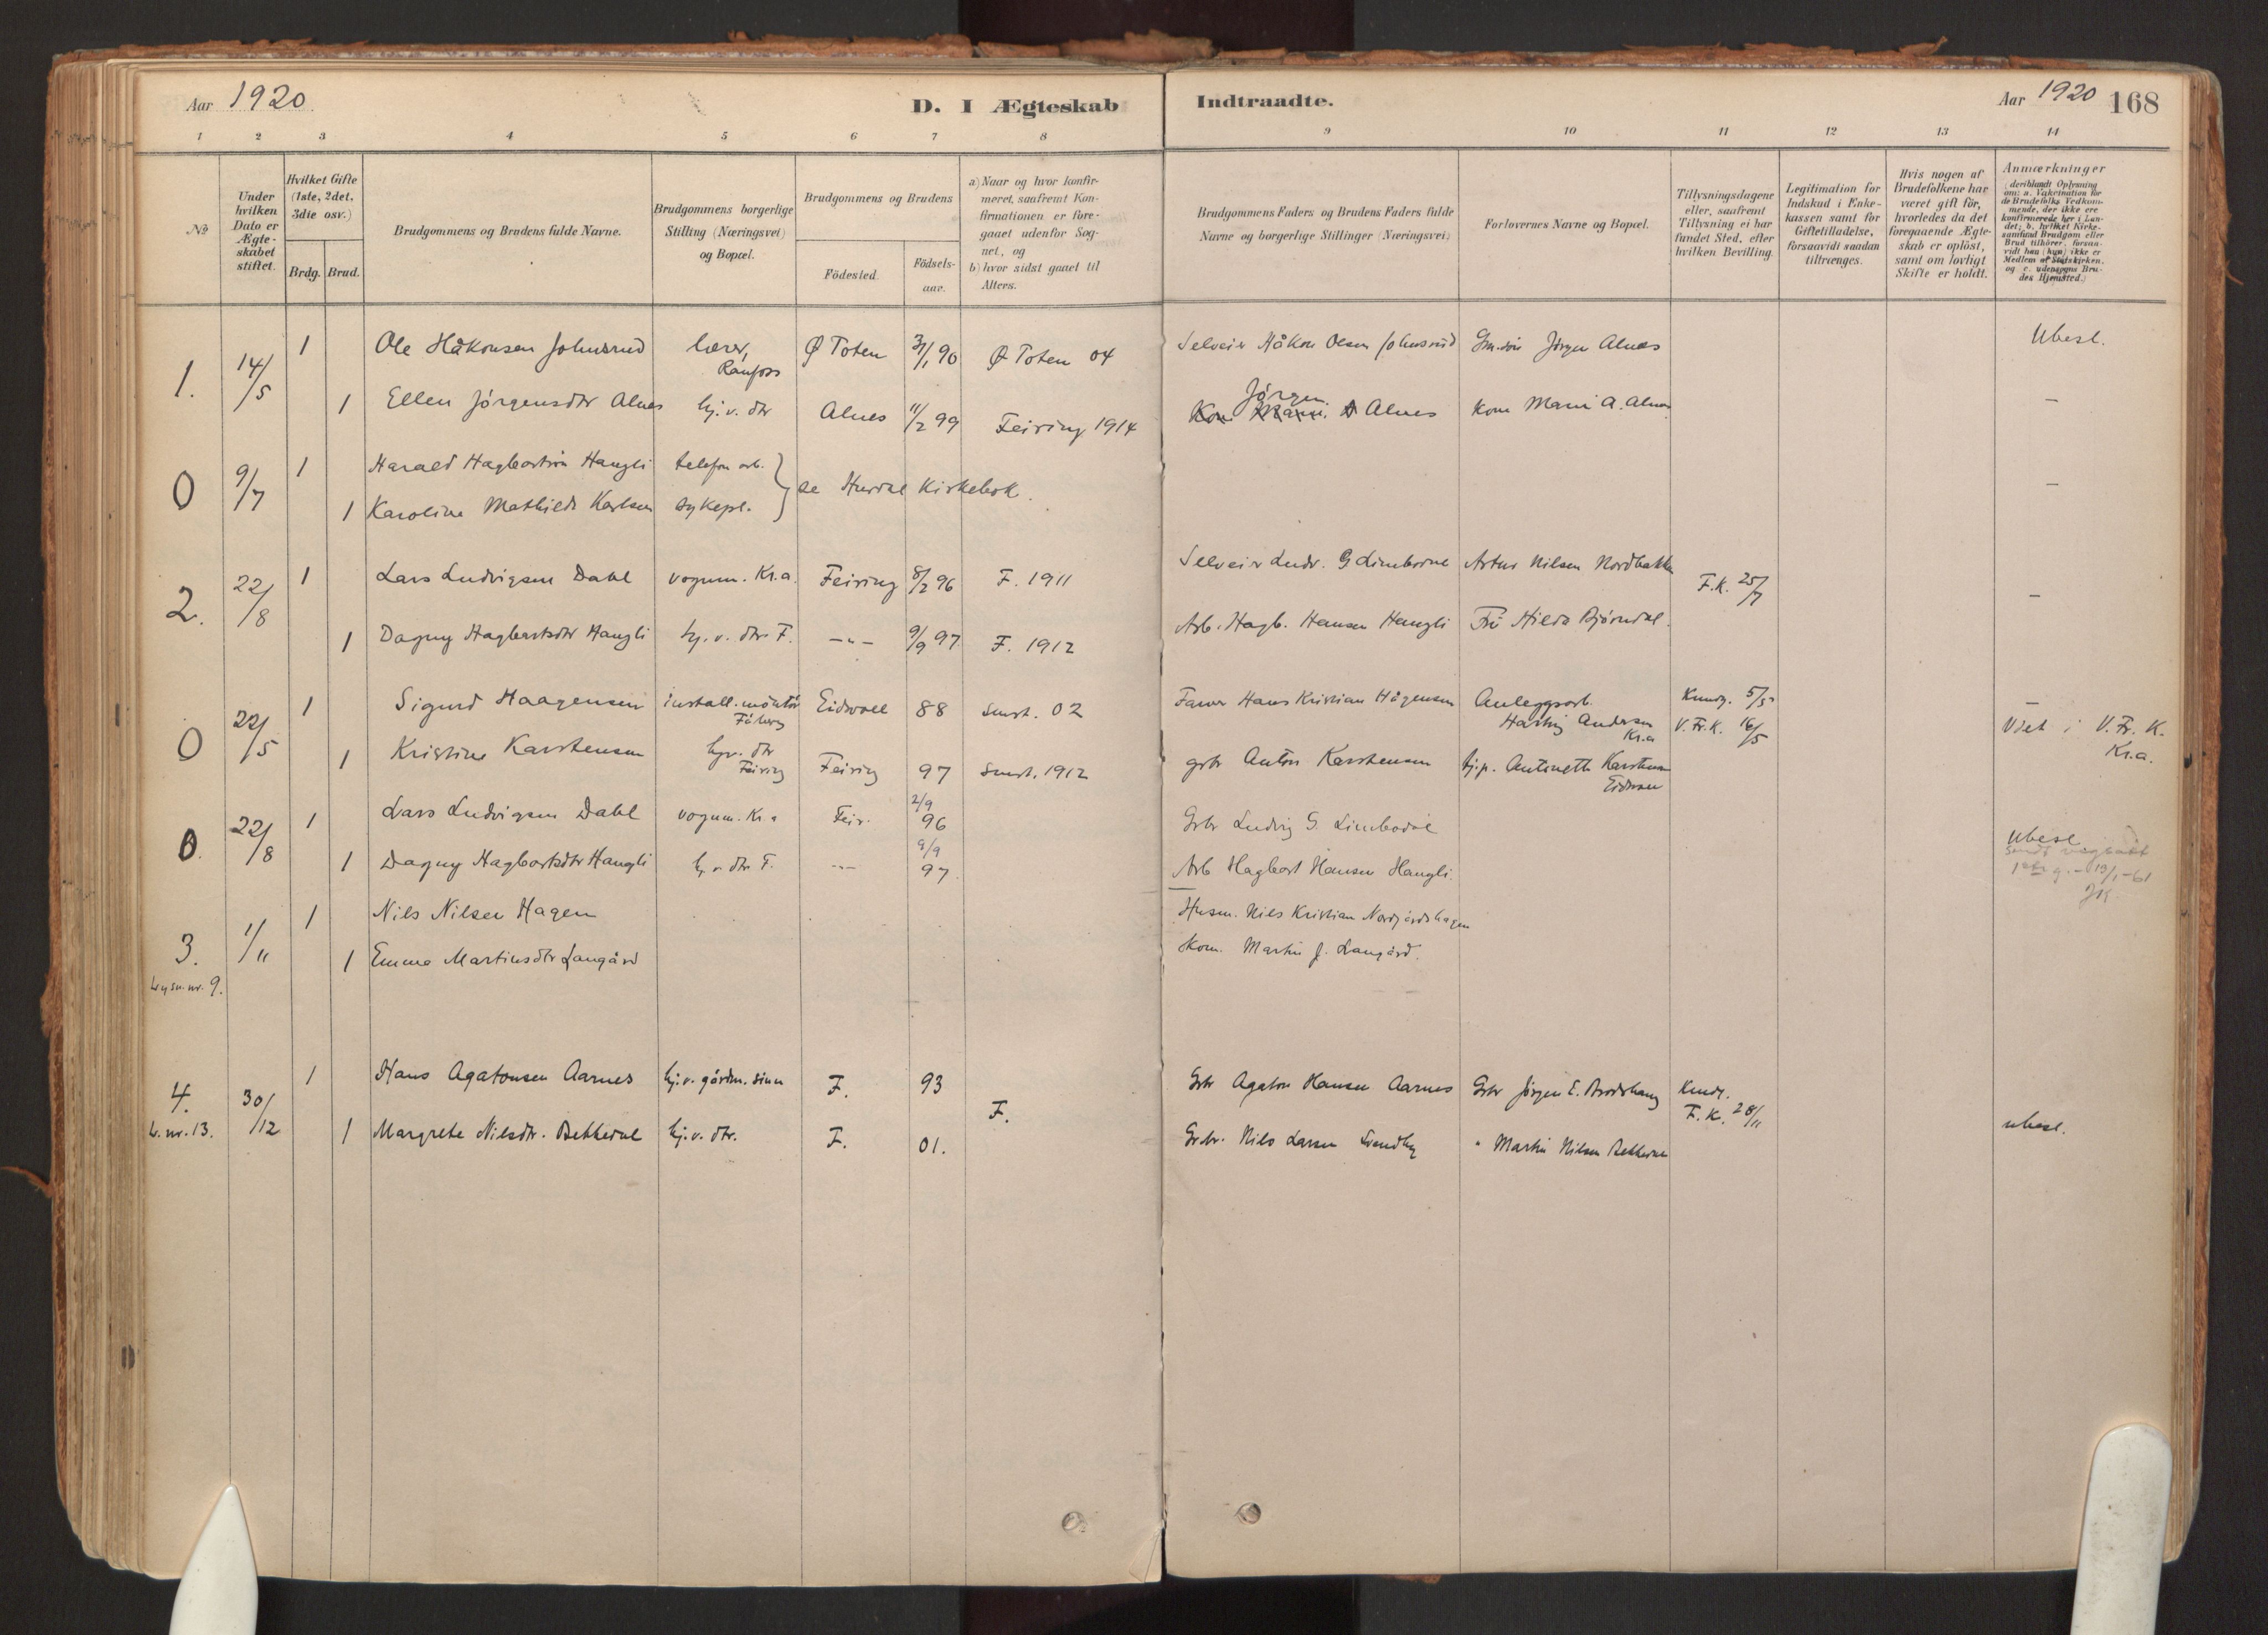 Aar 1920.
D. I Ægteskab
Indtraadte.
Aar 1920 168
1 2 3 4 5 6 7 8
9 10 11 12 13 14
No
Under hvilken Dato er Ægte-skabet stiftet.
Hvilket Gifte (1ste, 2det, 3die osv.)
Brdg. Brud.
Brudgommens og Brudens fulde Navne.
Brudgommens borgerlige Stilling (Næringsvei) og Bopæl.
Brudgommens og Brudens
Födested.
Födsels-aar.
a) Naar og hvor konfir-meret, saafremt Kon-firmationen er fore-gaaet udenfor Sog-net, og
b) hvor sidst gaaet til Alters.
Brudgommens Faders og Brudens Faders fulde Navne og borgerlige Stillinger (Næringsvei)
Forlovernes Navne og Bopæl.
Tillysningsdagene eller, saafremt Tillysning ei har fundet Sted, efter hvilken Bevilling.
Legitimation for Indskud i Enke-kassen samt for Giftetilladelse, forsaavidt saadan tiltrænges.
Hvis nogen af Brudefolkene har været gift för, hvorledes da det foregaaende Ægte-skab er oplöst, samt om lovligt Skifte er holdt.
Anmærkninger
(deriblandt Oplysning om: a. Vakcination for de Brudefolks Vedkom-mende, der ikke ere konfirmerede her i Lan-det; b. hvilket Kirke-samfund Brudgom eller Brud tilhörer, forsaa-vidt han (hun) ikke er Medlem af Statskirken. og c. udensogns Bru-des Hjemsted.)
1. 14/5 1 Ole Håkonsen Johnsrud lærer, Raufoss Ø Toten 31/1 90 Ø Toten 04 Selveier Håkon Olsen Johnsrud Jørgen Alnes Ubesl.
1 Ellen Jörgensdtr Alnes hj. v. dtr Alnes 11/2 99 Feiring 1914 Jörgen Alnes kone Marni A. Alnes –
0 9/7 1 Harald Hagbartsön Hangli telefon arb. se Hurdal Kirkebok. –
1 Karoline Mathilde Karlsen sykepl.
2. 22/8 1 Lars Ludvigsen Dahl vognm. Kr.a. Feiring 8/2 96 F. 1911 Selveier Ludv. G Limbodal Artur Nilsen Nordbakken F.K. 25/7 –
1 Dagny Hagbartsdtr Hangli hj. v. dtr F. –"– 9/9 97 F. 1912 Arb. Hagb. Hansen Hangli Frk Hilda Bjørndal.
0 22/5 1 Sigurd Haagensen install. montör Fåberg Eidsvoll 88 smst. 02 Farver Hans Kristian Hågensen Anleggsarb. Andersen Kr.a Kundg. 5/5 V. Fr. K. 16/5 –
Viet i V. Fr. K. Kr.a.
1 Kristine Karstensen hjv. dtr Feiring Feiring 97 smst. 1912 grbr Anton Karstensen hj.p. Antonette Karstensen Eidsvoll
0. 22/8 1 Lars Ludvigsen Dahl vognm. Kr.a Feir. 2/9 96 Grbr Ludvig G. Limbodal Ubesl
1 Dagny Hagbartsdtr Hangli hj. v. dtr F. –"– 9/9 97. Arb Hagbart Hansen Hangli. 19/1-61
3. 1/11 1 Nils Nilsen Hagen Husm. Nils Kristian Nordgårdshagen
1 Emma Martinsdtr Langård Kom. Martin J. Langård.
Lysn. nr. 9.
4. 30/12 1 Hans Agatonsen Aarnes hj. v. gårdm. sönn F. 93 F. Grbr Agaton Hansen Aarnes Grbr Jörgen E. Kundg. F. K. 28/11
L. nr. 13. 1 Margrete Nilsdtr. Bekkedal hj. v. dtr. F. 01. Grbr. Nils Larsen " Martin Nilsen Bekkedal ubesl.